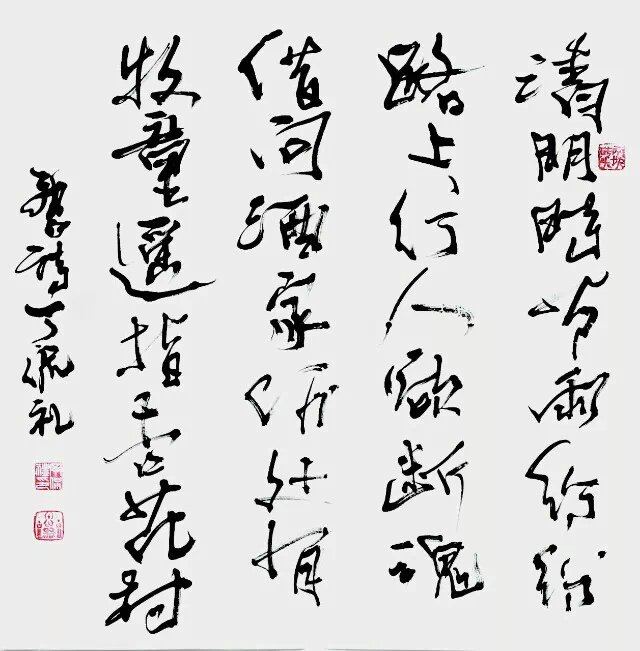 清明時节雨紛紛
路上行人欲断魂
借问酒家何处有
牧童遥指杏花村
詩丁侃礼